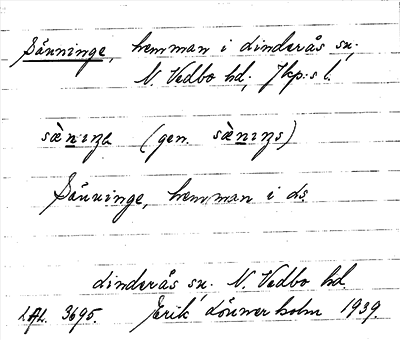 Sänninge, hemman i Linderås sn,
N. Vedbo hd, Jkp:s l.
(gen.
Sänninge, hemman i ds.
Linderås sn, N. Vedbo hd.
3695. Erik Lönnerholm 1939.